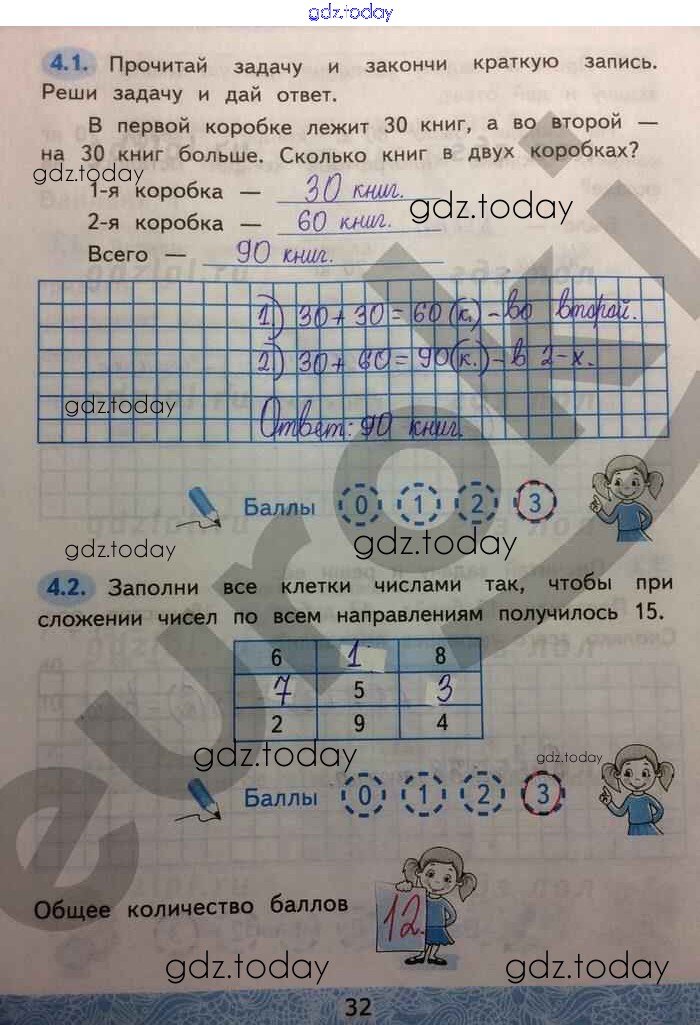 gdz.today
4.1. Прочитай задачу и закончи краткую запись.
Реши задачу и дай ответ.
В первой коробке лежит 30 книг, а во второй —
на 30 книг больше. Сколько книг в двух коробках?
gdz.today
1-я коробка — 30 книг.
gdz.today
2-я коробка — 60 книг.
Всего — 90 книг.
1) 30 + 30 = 60 (к.) – во второй.
2) 30 + 60 = 90 (к.) – в 2-х.
gdz.today
Ответ: 90 книг.
Баллы 0 1 2 3
gdz.today
gdz.today
4.2. Заполни все клетки числами так, чтобы при
сложении чисел по всем направлениям получилось 15.
6 1 8
7 5 3
2 9 4
gdz.today
gdz.today
Баллы 0 1 2 3
Общее количество баллов 12.
gdz.today
gdz.today
32
euroki